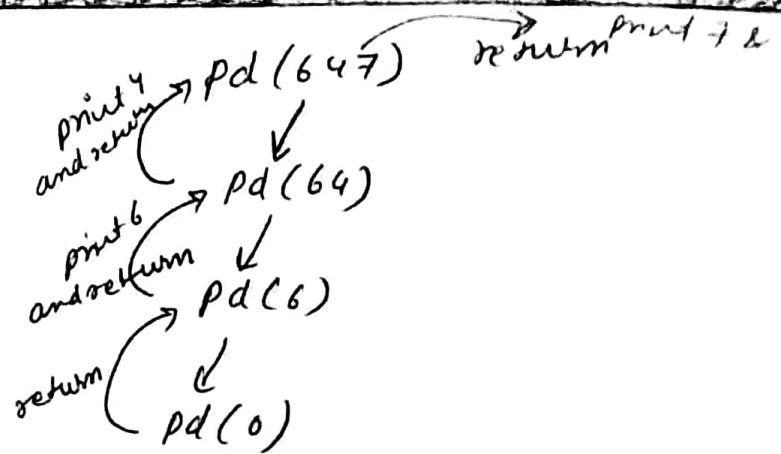 return print 7 &
Pd (647)
print 4
and return
Pd (64)
print 6
and return
Pd (6)
return
Pd (0)